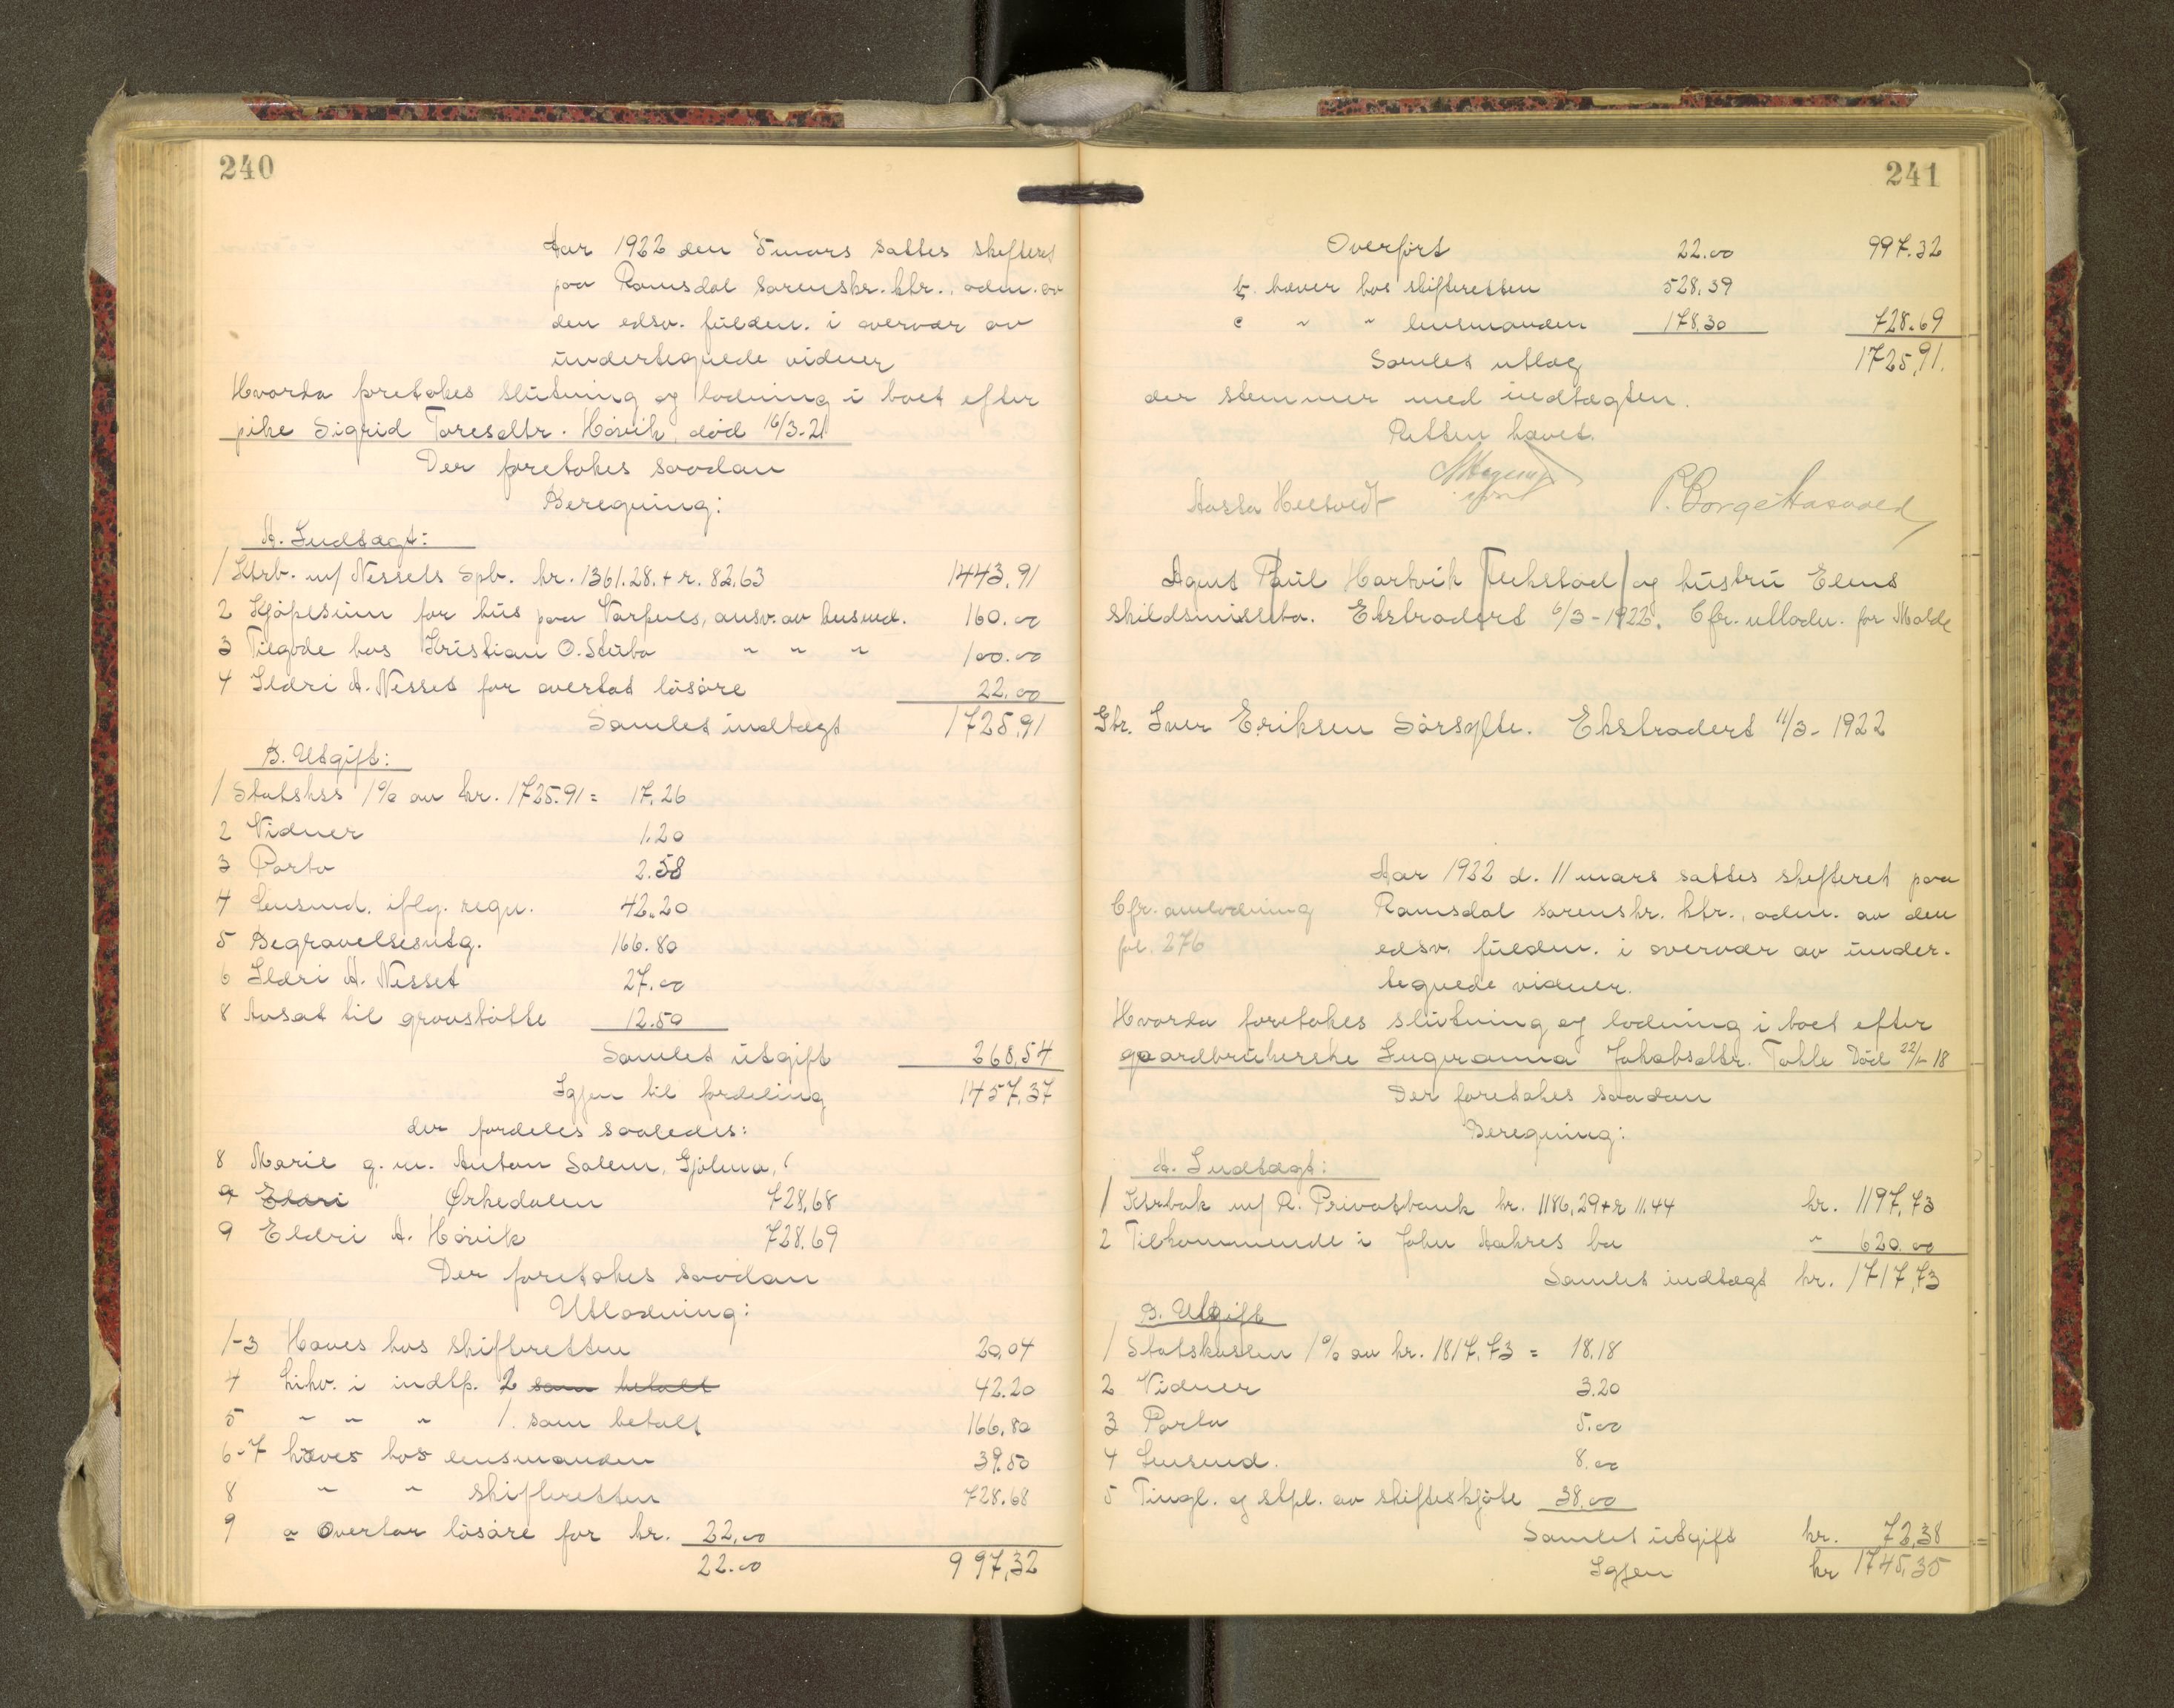 240
Aar 1922 den 8 mars sattes skifteret
paa Romsdal sorenskr. ktr., adm. av
den edsv. fuldm. i overvær av
undertegnede vidner
Hvorda foretokes slutning og lodning i boet efter
pike Sigrid Toresdtr. Hovik, død 16/3-21
Der foretokes saadan
Beregning:
A. Indtægt:
1 Ktrb. m/ Nessets Spb. kr. 1361.28 + r. 82.63 1443.91
2 Kjøpesum for hus paa Varpnes, ansv. av lensmd. 160.00
3 Tilgode hos Kristian O. Stubø " " " 100.00
4 Ildri A. Nesset for overtat løsøre 22.00
Samlet indtægt 1725.91
B. Utgift:
1 Statsks 1% av kr. 1725.91 = 17.26
2 Vidner 1.20
3 Porto 2.58
4 Lensmd. iflg. regn. 42.20
5 Begravelsesutg. 166.80
6 Ildri A. Nesset 27.00
8 Avsat til gravstøtte 12.50
Samlet utgift 268.54
Igjen til fordeling 1457.37
der fordeles saaledes:
8 Marie g. m. Anton Solem, Gjølma,
9 Eldri Ørkedalen 728.68
9 Eldri A. Hovik 728.69
Der foretokes saadan
Utlodning:
1-3 Haves hos skifteretten 20.04
4 Likv. i indtp. 2 som betalt 42.20
5 " " " 1. som betalt 166.80
6-7 hæves hos lensmanden 39.50
8 " " skifteretten 728.68
9 a Overtar løsøre for kr. 22.00
22.00 997.32
241
Overført 22.00 997.32
b. hæver hos skifteretten 528.39
c " " lensmanden 178.30 728.69
Samlet utlæg 1725.91.
der stemmer med indtægten.
Retten hævet.
Aasta Heltvedt P. Borge Aasvald
Agent Paul Hartvik Tukstad og hustru Elens
skildsmissebo. Ekstradert 6/3-1922. Cfr. utlodn. for Molde
Gbr. Iver Eriksen Sørsylte. Ekstradert 11/3-1922
Cfr. omlodning
fol. 276
Aar 1922 d. 11 mars sattes skifteret paa
Romsdal sorenskr. ktr., adm. av den
edsv. fuldm. i overvær av under-
tegnede vidner.
Hvorda foretokes slutning og lodning i boet efter
gaardbrukerske Ingeranna Jakobsdtr. Tokle død 22/1-18
Der foretokes saadan
Beregning:
A. Indtægt:
1 Ktrbok m/ R. Privatbank kr. 1186,29 + r 11.44 kr. 1197,73
2 Tilkommende i John Aakres bo " 620.00
Samlet indtægt kr. 1717,73
B. Utgift
1 Statskassen 1% av kr. 1817.73 = 18.18
2 Vidner 3.20
3 Porto 5.00
4 Lensmd. 8.00
5 Tingl. og stpl. av skifteskjøte 38.00
Samlet utgift kr. 72,38
Igjen kr 1745,35